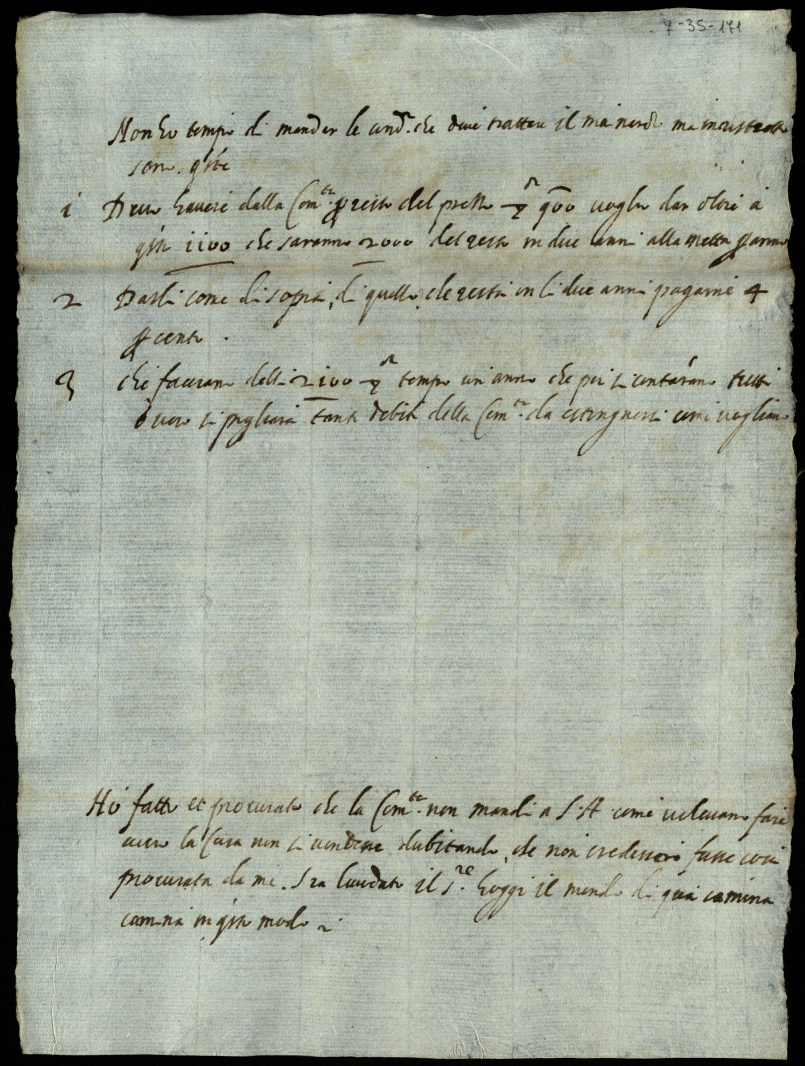 7-35-171
Non ho tempo di mandar le cond.ni che deve trattare il mainardi ma in ristretto
sono. q̃ste
1 Deve havere dalla Com.tà ꝑ resto del prezzo 900 voglio dar oltre a
q̃sti 1100 che saranno 2000 del resto in due anni alla metta ꝑ anno
2 Darli come di sopra, di quello che resta in li due anni pagarne 4
ꝑ cento.
3 che facciano delli 2100 tempo un anno che poi si contarano tutti
o vero si pigliarà tanti debiti della Com.tà da estinguersi come vogliano
Hó fatto et procurato che la Com.tà non mandi a S. A. come volevano fare
acciò la Casa non si vendesse dubitando, che non credessero fusse cosi
procurata da me. Sia laudato il S.re hoggi il mondo di quà camina
camina in q̃sto modo